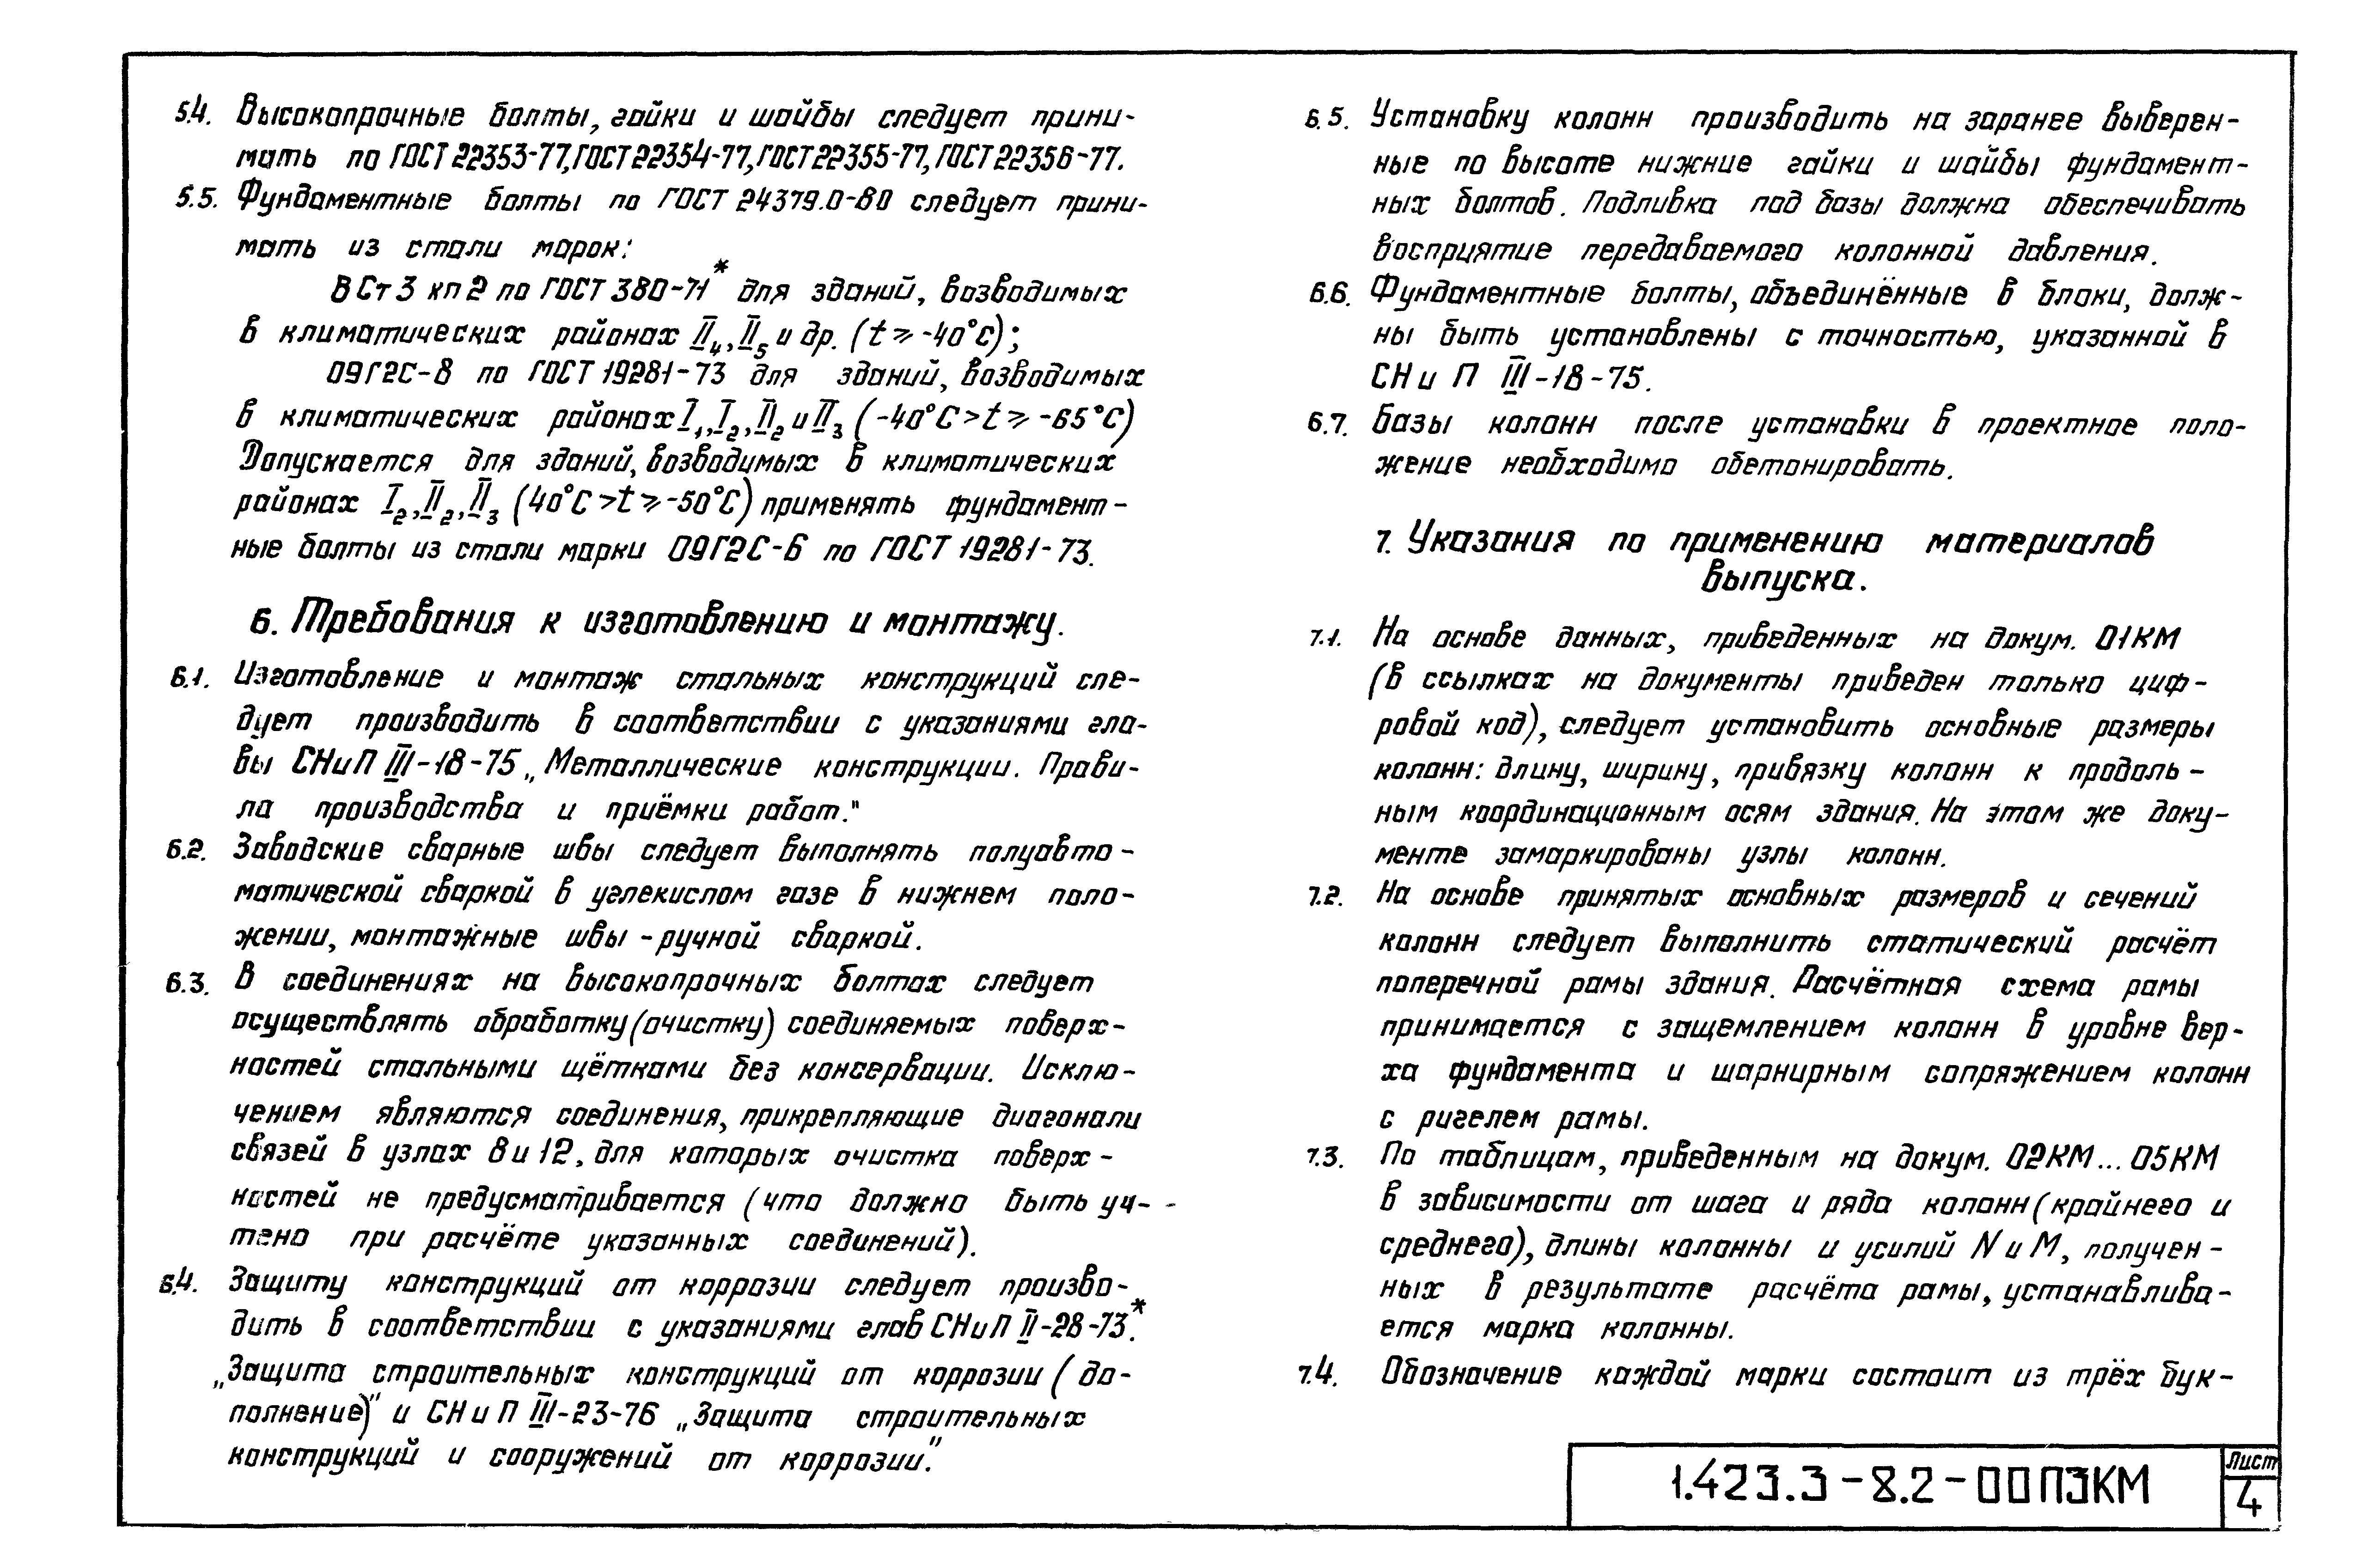 5.4. Высокопрочные болты, гайки и шайбы следует прини-
мать по ГОСТ 22353-77, ГОСТ 22354-77, ГОСТ 22355-77, ГОСТ 22356-77.
5.5. Фундаментные болты по ГОСТ 24379.0-80 следует прини-
мать из стали марок:
ВСт3кп2 по ГОСТ 380-71* для зданий, возводимых
в климатических районах II₄, II₅ и др. (t ⩾ -40°C);
09Г2С-8 по ГОСТ 19281-73 для зданий, возводимых
в климатических районах I₁, I₂, II₂ и II₃ (-40°C > t ⩾ -65°C)
Допускается для зданий, возводимых в климатических
районах I₂, II₂, II₃ (40°C > t ⩾ -50°C) применять фундамент-
ные болты из стали марки 09Г2С-6 по ГОСТ 19281-73.
6. Требования к изготовлению и монтажу.
6.1. Изготовление и монтаж стальных конструкций сле-
дует производить в соответствии с указаниями гла-
вы СНиП III-18-75 „Металлические конструкции. Прави-
ла производства и приёмки работ."
6.2. Заводские сварные швы следует выполнять полуавто-
матической сваркой в углекислом газе в нижнем поло-
жении, монтажные швы - ручной сваркой.
6.3. В соединениях на высокопрочных болтах следует
осуществлять обработку (очистку) соединяемых поверх-
ностей стальными щётками без консервации. Исклю-
чением являются соединения, прикрепляющие диагонали
связей в узлах 8 и 12, для которых очистка поверх-
ностей не предусматривается (что должно быть уч-
тено при расчёте указанных соединений).
6.4. Защиту конструкций от коррозии следует произво-
дить в соответствии с указаниями глав СНиП II-28-73*.
„Защита строительных конструкций от коррозии (до-
полнение)" и СНиП III-23-76 „Защита строительных
конструкций и сооружений от коррозии."
6.5. Установку колонн производить на заранее выверен-
ные по высоте нижние гайки и шайбы фундамент-
ных болтов. Подливка под базы должна обеспечивать
восприятие передаваемого колонной давления.
6.6. Фундаментные болты, объединённые в блоки, долж-
ны быть установлены с точностью, указанной в
СНиП III-18-75.
6.7. Базы колонн после установки в проектное поло-
жение необходимо обетонировать.
7. Указания по применению материалов
выпуска.
7.1. На основе данных, приведенных на докум. 01КМ
(в ссылках на документы приведен только циф-
ровой код), следует установить основные размеры
колонн: длину, ширину, привязку колонн к продоль-
ным координационным осям здания. На этом же доку-
менте замаркированы узлы колонн.
7.2. На основе принятых основных размеров и сечений
колонн следует выполнить статический расчёт
поперечной рамы здания. Расчётная схема рамы
принимается с защемлением колонн в уровне вер-
ха фундамента и шарнирным сопряжением колонн
с ригелем рамы.
7.3. По таблицам, приведенным на докум. 02КМ...05КМ
в зависимости от шага и ряда колонн (крайнего и
среднего), длины колонны и усилий N и М, получен-
ных в результате расчёта рамы, устанавлива-
ется марка колонны.
7.4. Обозначение каждой марки состоит из трёх бук-
1.423.3-8.2-00ПЗКМ
Лист
4